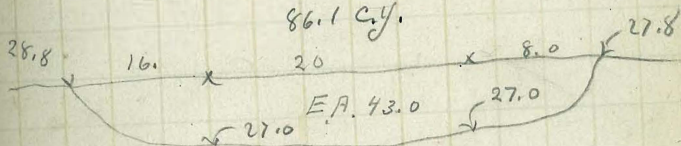 86.1 C.Y.
28.8 16. x 20 x 8.0 27.8
E.A. 43.0
27.0 27.0